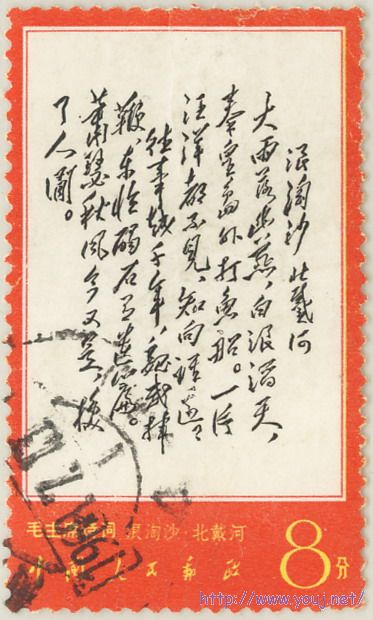 浪淘沙 北戴河
大雨落幽燕,白浪滔天,
秦皇島外打魚船。一片
汪洋都不見,知向誰邊?
往事越千年,魏武揮
鞭,東臨碣石有遺篇。
蕭瑟秋風今又是,換
了人間。
毛主席诗词 浪淘沙·北戴河
8分
中国人民邮政
http://www.youj.net/